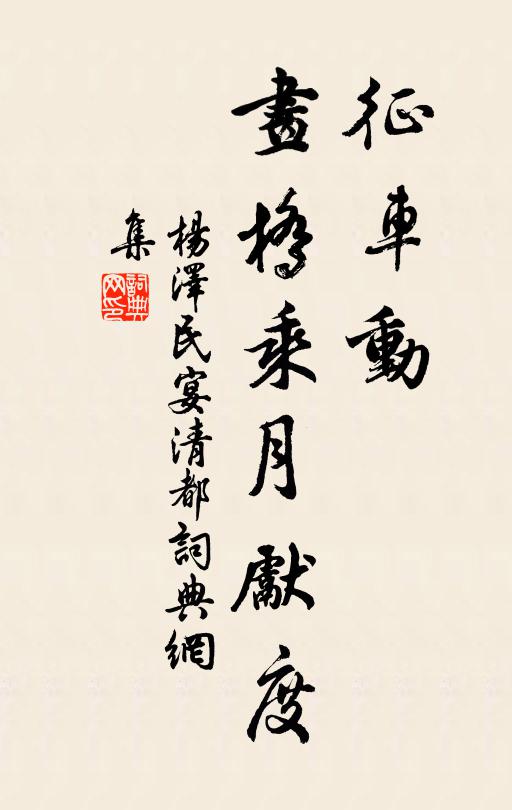 征車動
畫橋乘月獻度
楊澤民宴清都詞典網
集
詞典
网印